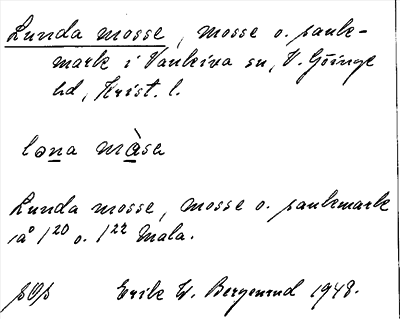 Lunda mosse, mosse o. sank-
mark i Vankiva sn, V. Göinge
hd, Krist. l.
lona màsa
Lunda mosse, mosse o. sankmark
på 1²⁰ o. 1²² Mala.
Erik W. Bergenrud 1948.